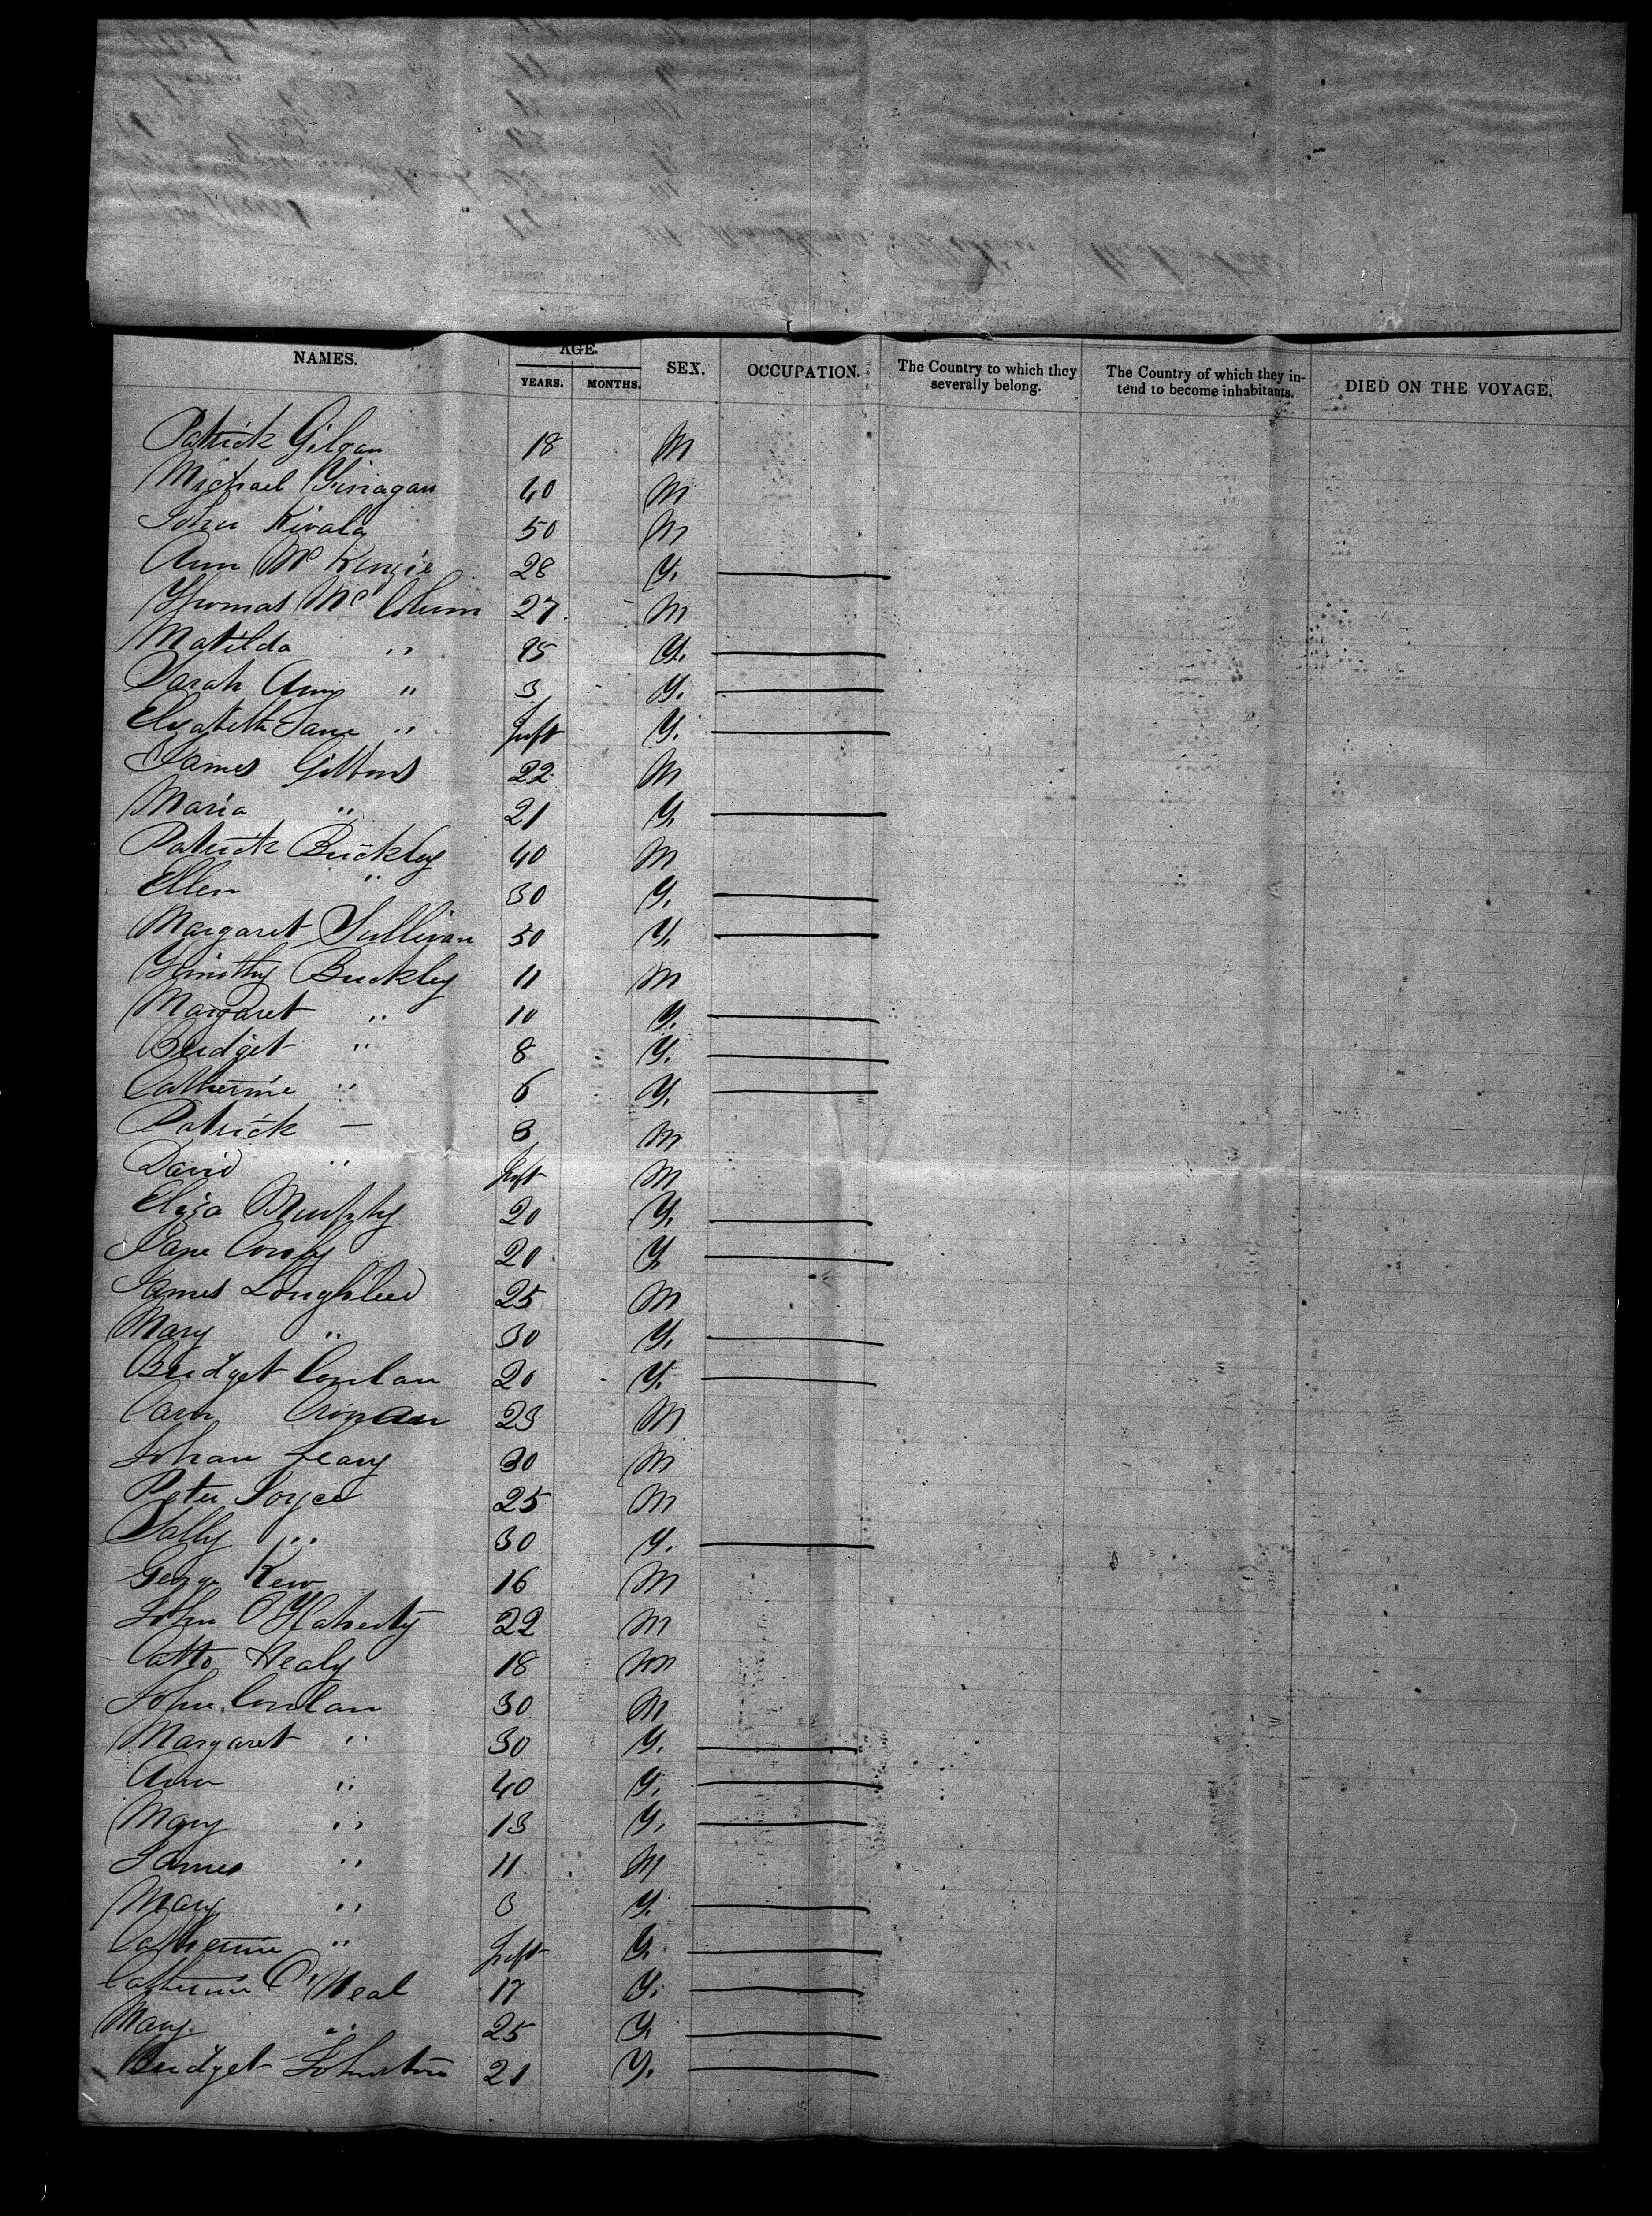 NAMES. AGE. SEX. OCCUPATION. The Country to which they severally belong. The Country of which they intend to become inhabitants. DIED ON THE VOYAGE.
YEARS. MONTHS.
Patrick Gilgan 18 M
Michael Finagan 40 M
John Kivala 50 M
Ann McKenzie 28 F.
Thomas McCollum 27 M
Matilda " 25 F.
Sarah Ann " 3 F.
Elizabeth Jane " Inft F.
James Gittons 22 M
Maria " 21 F.
Patrick Buckley 40 M
Ellen " 30 F.
Margaret Sullivan 50 F.
Timothy Buckley 11 M
Margaret " 10 F.
Bridget " 8 F.
Catherine " 6 F.
Patrick — 3 M
David " Inft M
Eliza Murphy 20 F.
Jane 20 F.
James Loughleed 25 M
Mary " 30 F.
Bridget Conlan 20 F.
Cronan 23 M
Johan Leary 30 M
Peter Joyce 25 M
Sally " 30 F.
George Kew 16 M
John O'Flaherty 22 M
Healy 18 M
John Conlan 30 M
Margaret " 30 F.
Ann " 40 F.
Mary " 13 F.
James " 11 M
Mary " 3 F.
Catherine " Inft F.
Catherine O'Neal 17 F.
Mary " 25 F.
Bridget Johnston 21 F.